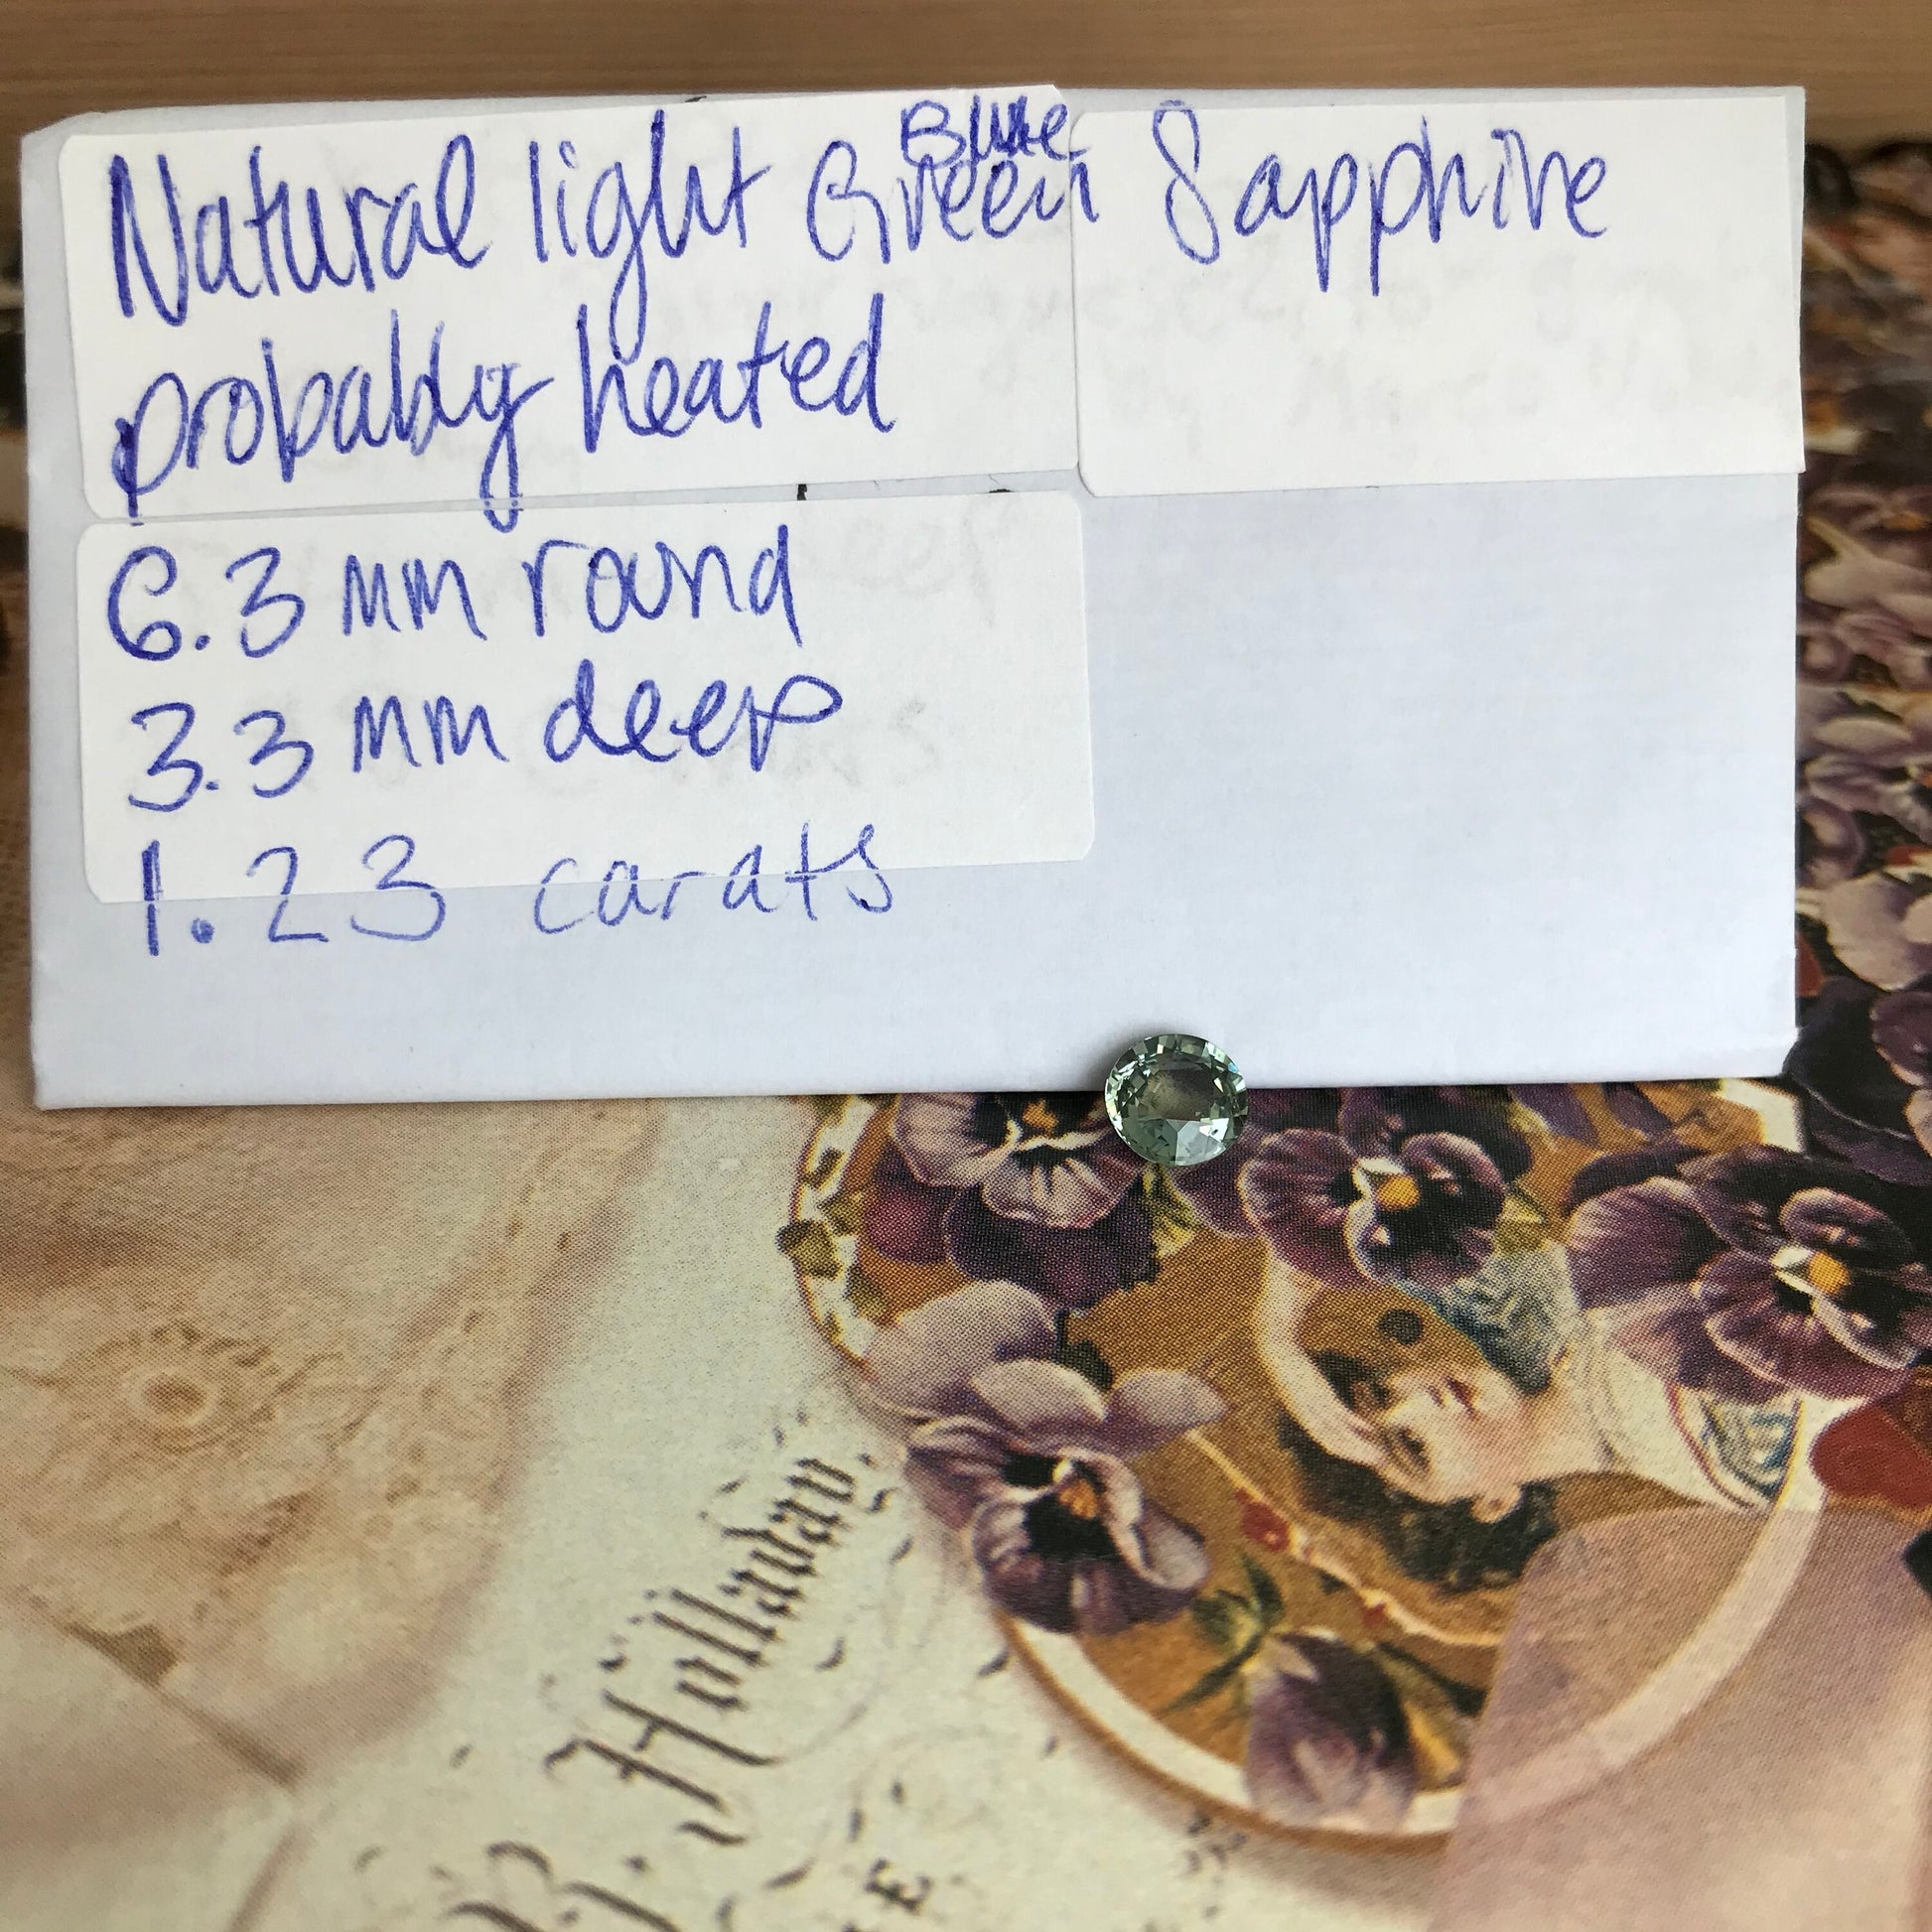 Blue
Natural light Green Sapphire
probably heated
6.3 mm round
3.3 mm deep
1.23 carats
Holladay.
B.
E